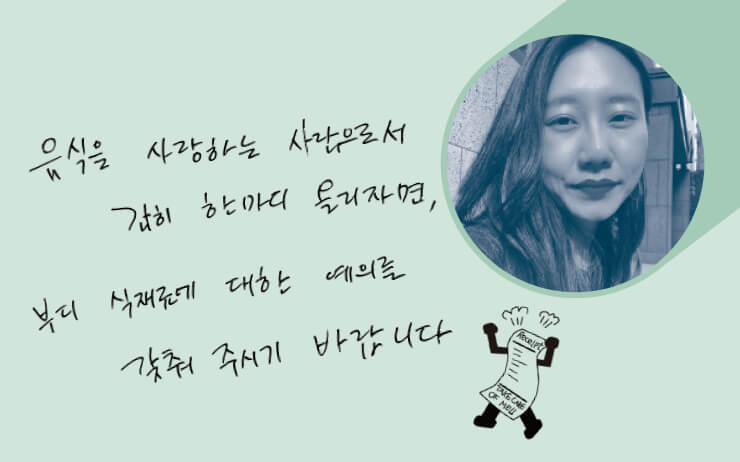 음식을 사랑하는 사람으로서
감히 한마디 올리자면,
부디 식재료에 대한 예의를
갖춰 주시기 바랍니다
Receipt
TAKE CARE
OF ME!!